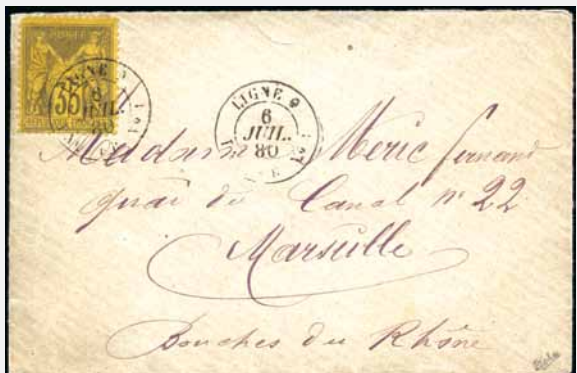 35
LIGNE
6
JUIL.
80
LIGNE Q
6
JUIL.
80
Madame Meric fernand
quai du Canal n° 22
Marseille
Bouches du Rhône